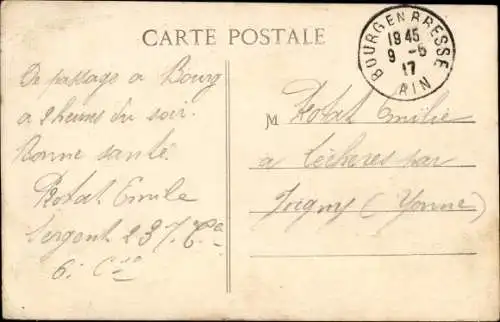 CARTE POSTALE
BOURG EN BRESSE
1945
9 - 5
17
AIN
De passage a Bourg
a 2 heures du soir.
Bonne santé
Rotat Emile
Sergent 237. 
6: Cie
M Rotat Emilie
a Léchères par
Joigny (Yonne)